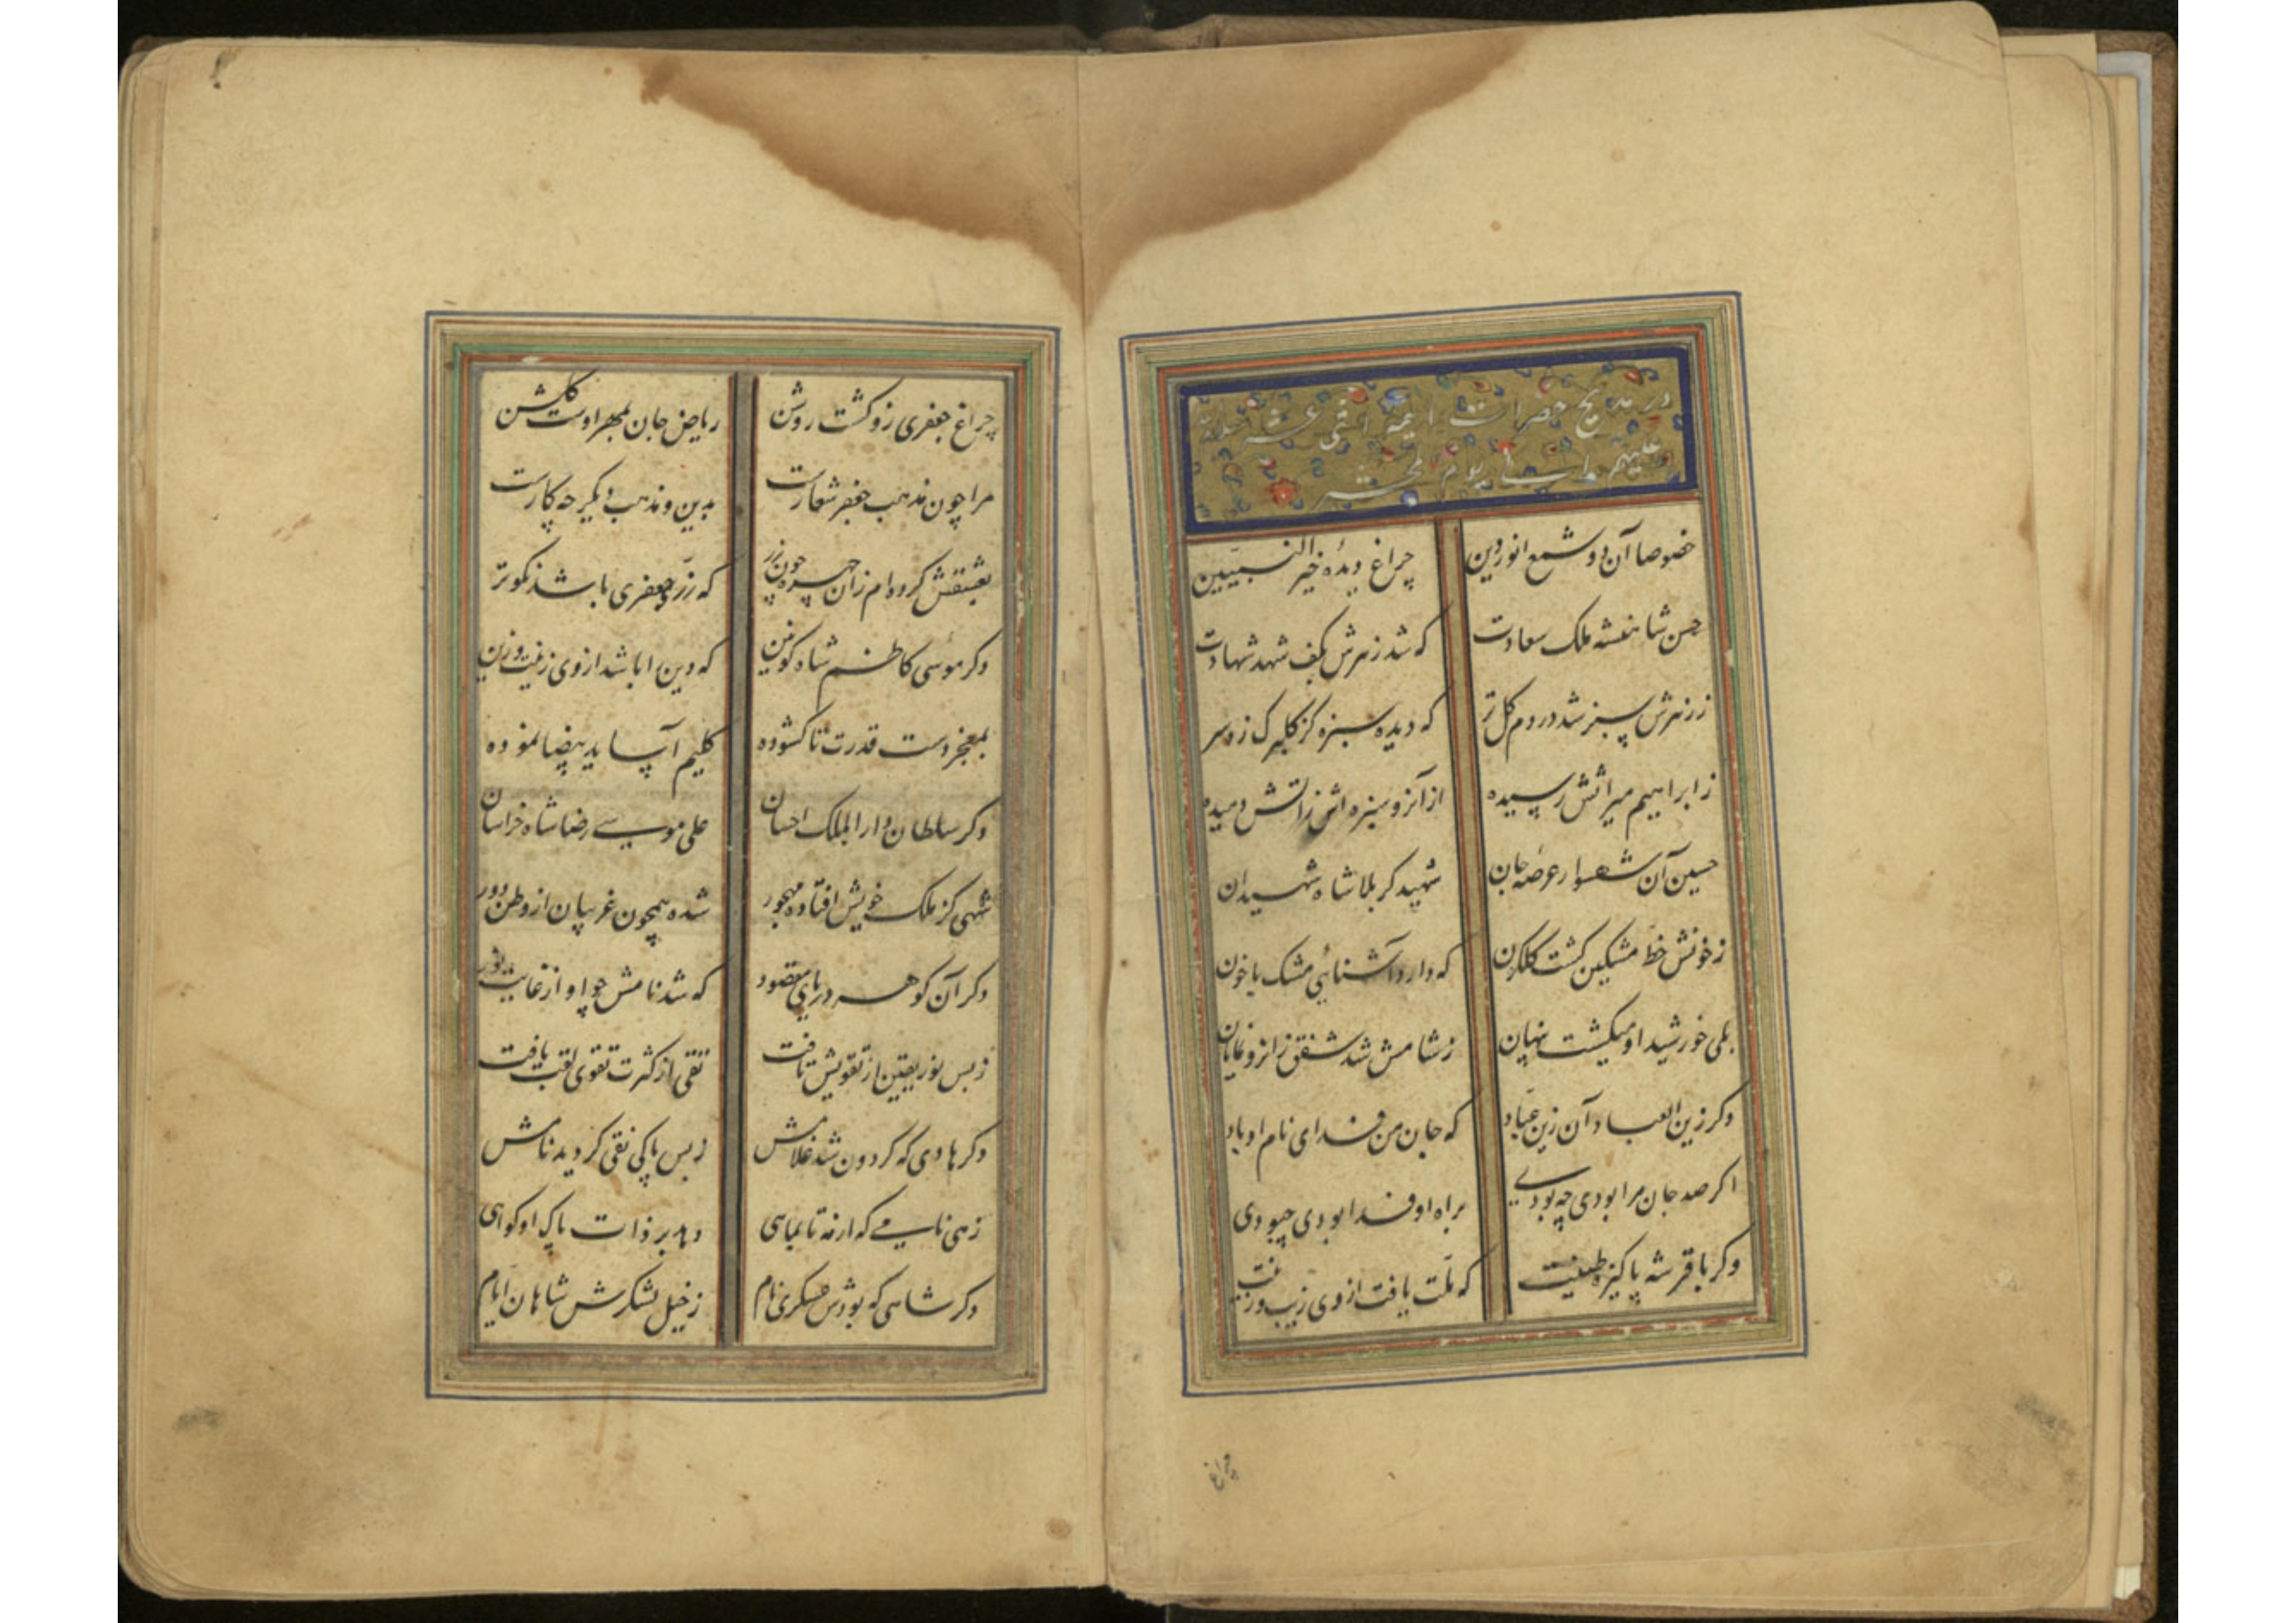 در مدیح حضرات ایمه اثنی عشر صلوات الله
علیهم الی یوم المحشر
خصوصا آن دو شمع انور دین چراغ دیدهٔ خیر النبیین
حسن شاهنشه ملک سعادت که شد زهرش بکف شهد شهادت
ز زهرش سبز شد در دم کل تر که دیده سبزه کز کلبرک زد سر
ز ابراهیم میراثش رسیده از آنرو سبزه اش زاتش دمیده
حسین آن شهسوار عرصهٔ جان شهید کربلا شاه شهیدان
ز خونش خط مشکین کشت کلکون که دارد آشنائی مشک با خون
بلی خورشید او میکشت پنهان ز شامش شد شفق زانرو نمایان
دکر زین العباد آن زین عباد که جان من فدای نام او باد
اکر صد جان مرا بودی چه بودی براه او فدا بودی چبودی
دکر باقر شه پاکیزه طینت که ملت یافت از وی زیب و زینت
چراغ
چراغ جعفری زو کشت روشن ریاض جان بمهر اوست کلشن
مرا چون مذهب جعفر شعارست بدین و مذهب دیکر چه کارست
بعشقش کرده ام زان چهره چون زر که زر جعفری باشد نکوتر
دکر موسی کاظم شاه کونین که دین را باشد از وی زینت و زین
بمعجز دست قدرت تا کشوده کلیم آسا ید بیضا نموده
دکر سلطان دار الملک احسان علی موسی رضا شاه خراسان
شهی کز ملک خویش افتاده مهجور شده همچون غریبان از وطن دور
دکر آن کوهر دریای مقصود که شد نامش جواد از غایت
ز بس نور یقین از تقویش تافت تقی از کثرت تقوی لقب یافت
دکر هادی که کردون شد غلامش ز بس پاکی نقی کردید نامش
زهی نامی که از مه تا بماهی دهد بر ذات پاک او کواهی
دکر شاهی که بودش عسکری نام ز خیل لشکرش شاهان ایام